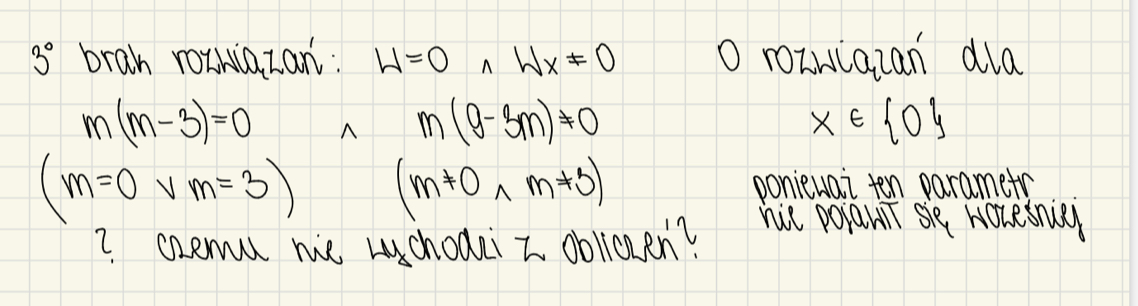 3° brak rozwiązań: W=0 ∧ Wx≠0
m(m-3)=0 ∧ m(9-3m)≠0
(m=0 ∨ m=3) (m≠0 ∧ m≠3)
? czemu nie wychodzi z obliczeń?
0 rozwiązań dla
x ∈ {0}
ponieważ ten parametr
nie pojawił się wcześniej